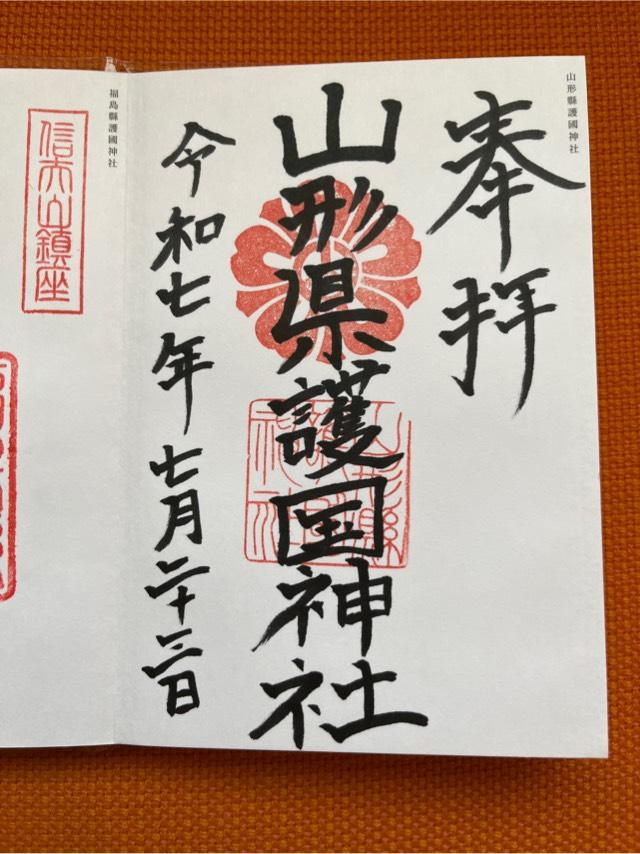 山形縣護國神社
奉拝
山形県護国神社
山形縣護國神社
令和七年七月二十三日
福島縣護國神社
信夫山鎮座